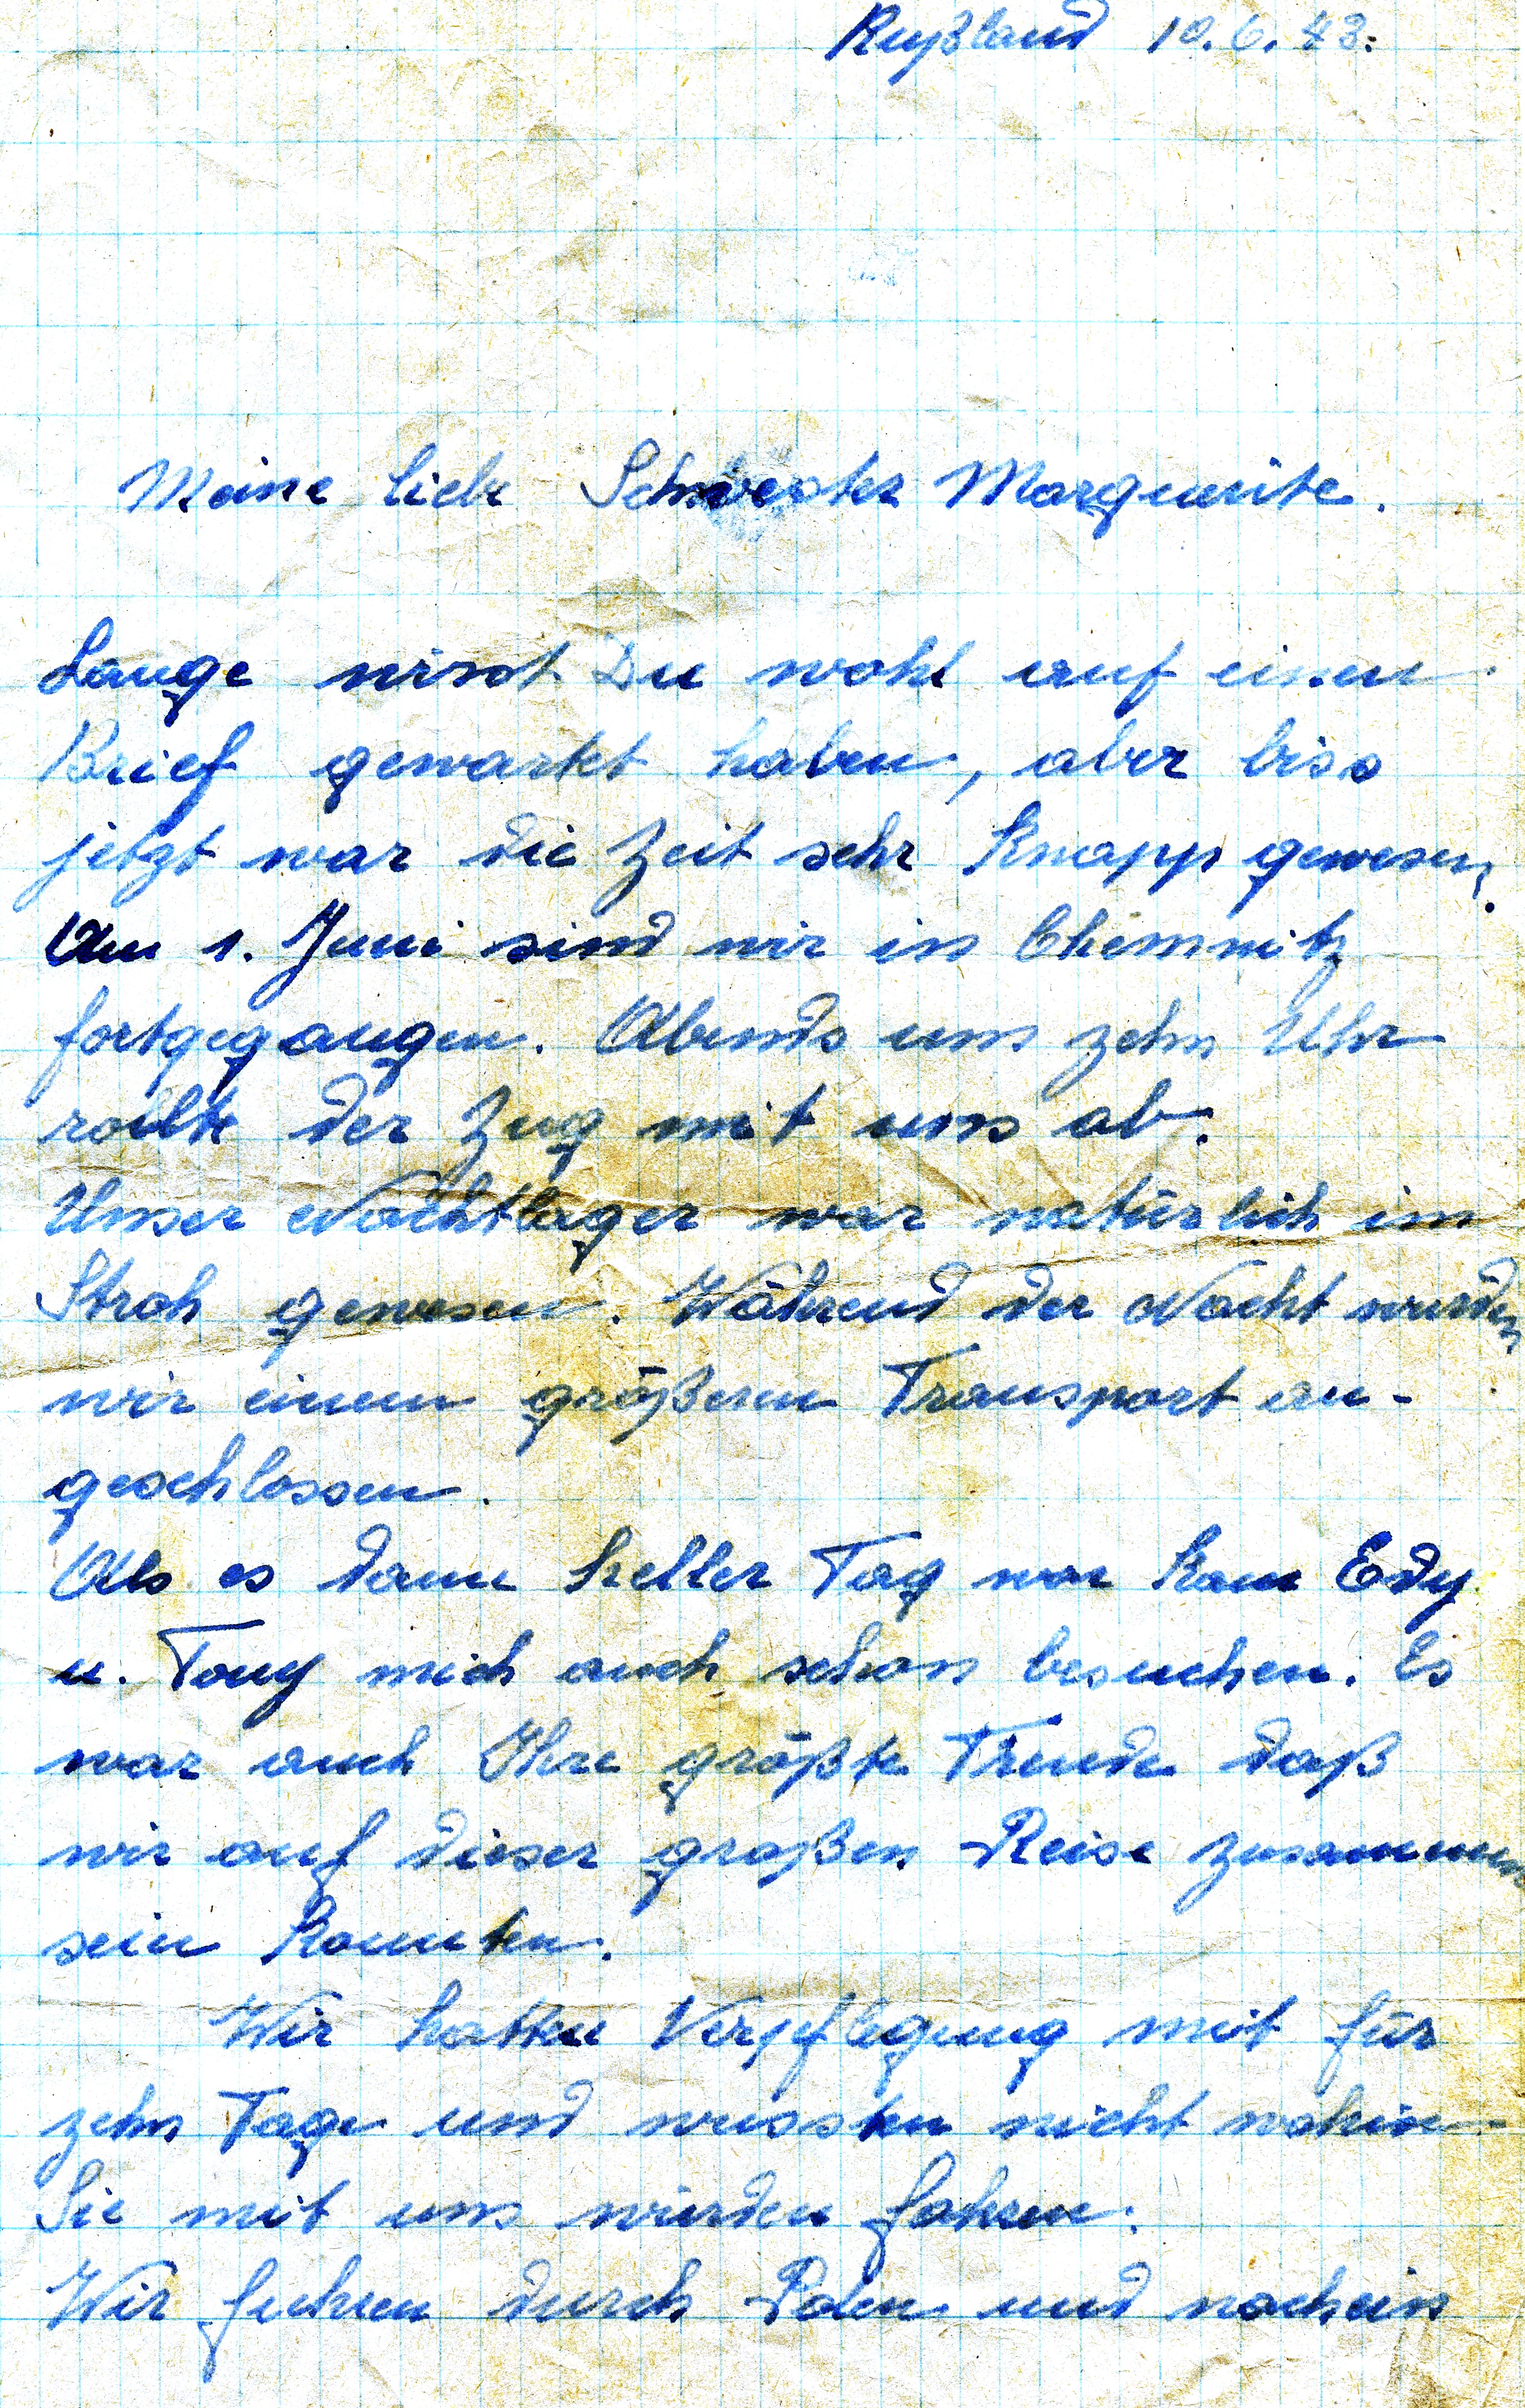 Rußland 10.6.43.
Meine liebe Schwester Marguerite.
Lange wirst Du wohl auf einen
Brief gewartet haben, aber biss
jetzt war die Zeit sehr Knapp gewesen.
Am 1. Juni sind wir in Chemnitz
fortgegangen. Abends um zehn Uhr
rollte der Zug mit uns ab.
Unser Nachtlager war natürlich im
Stroh gewesen. Während der Nacht wurden
wir einem größeren Transport an-
geschlossen.
Als es dann heller Tag war kam Edy
u. Tony mich auch schon besuchen. Es
war auch Ihre größte Freude daß
wir auf dieser großen Reise zusammen
sein konnten.
Wir hatten Verpflegung mit für
zehn Tage und wussten nicht wohin
Sie mit uns würden fahren.
Wir fuhren durch Polen und noch ein